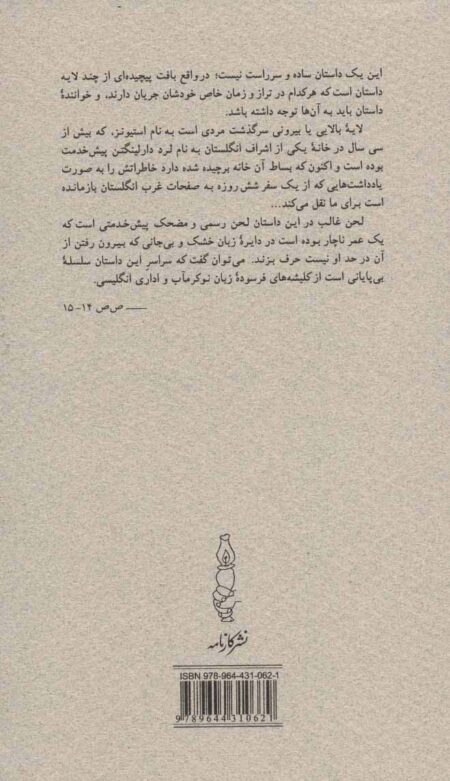 این یک داستان ساده و سرراست نیست؛ درواقع بافت پیچیده‌ای از چند لایه
داستان است که هرکدام در تراز و زمان خاص خودشان جریان دارند، و خوانندهٔ
داستان باید به آن‌ها توجه داشته باشد.
لایهٔ بالایی یا بیرونی سرگذشت مردی است به نام استیونز، که بیش از
سی سال در خانهٔ یکی از اشراف انگلستان به نام لرد دارلینگتن پیش‌خدمت
بوده است و اکنون که بساط آن خانه برچیده شده دارد خاطراتش را به صورت
یادداشت‌هایی که از یک سفر شش‌روزه به صفحات غرب انگلستان بازمانده
است برای ما نقل می‌کند...
لحن غالب در این داستان لحن رسمی و مضحک پیش‌خدمتی است که
یک عمر ناچار بوده است در دایرهٔ زبان خشک و بی‌جانی که بیرون رفتن از
آن در حد او نیست حرف بزند. می‌توان گفت که سراسر این داستان سلسلهٔ
بی‌پایانی است از کلیشه‌های فرسودهٔ زبان نوکرمآب و اداری انگلیسی.
—— ص‌ص ۱۴-۱۵
نشر کارنامه
ISBN 978-964-431-062-1
9 789644 310621